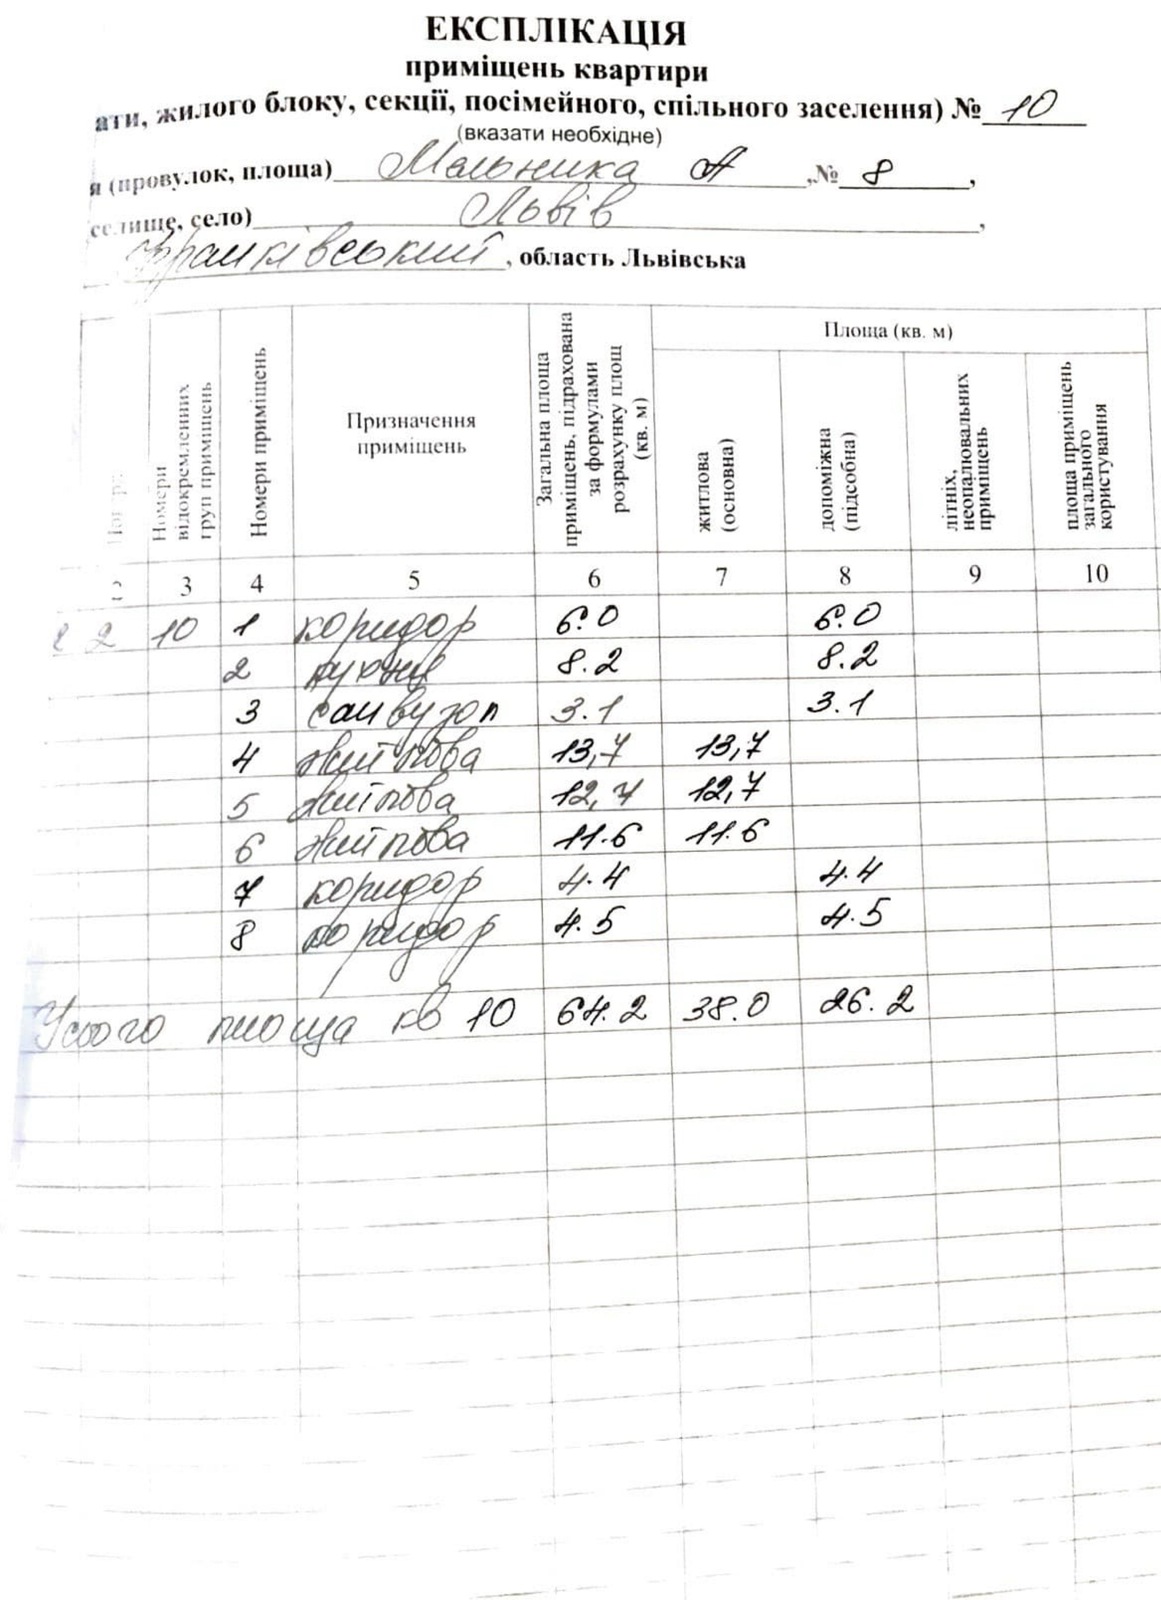 ЕКСПЛІКАЦІЯ
приміщень квартири
ати, жилого блоку, секції, посімейного, спільного заселення) № 10
(вказати необхідне)
я (провулок, площа) Мельника А ,№ 8 ,
селище, село) Львів ,
Франківський , область Львівська
Номери відокремленних груп приміщень
Номери приміщень
Призначення приміщень
Загальна площа приміщень, підрахована за формулами розрахунку площ (кв. м)
Площа (кв. м)
житлова (основна)
допоміжна (підсобна)
літніх, неопалювальних приміщень
площа приміщень загального користування
2 3 4 5 6 7 8 9 10
2 10 1 коридор 6.0 6.0
2 кухня 8.2 8.2
3 санвузол 3.1 3.1
4 житлова 13,7 13,7
5 житлова 12,7 12,7
6 житлова 11.6 11.6
7 коридор 4.4 4.4
8 коридор 4.5 4.5
Усього площа кв 10 64.2 38.0 26.2